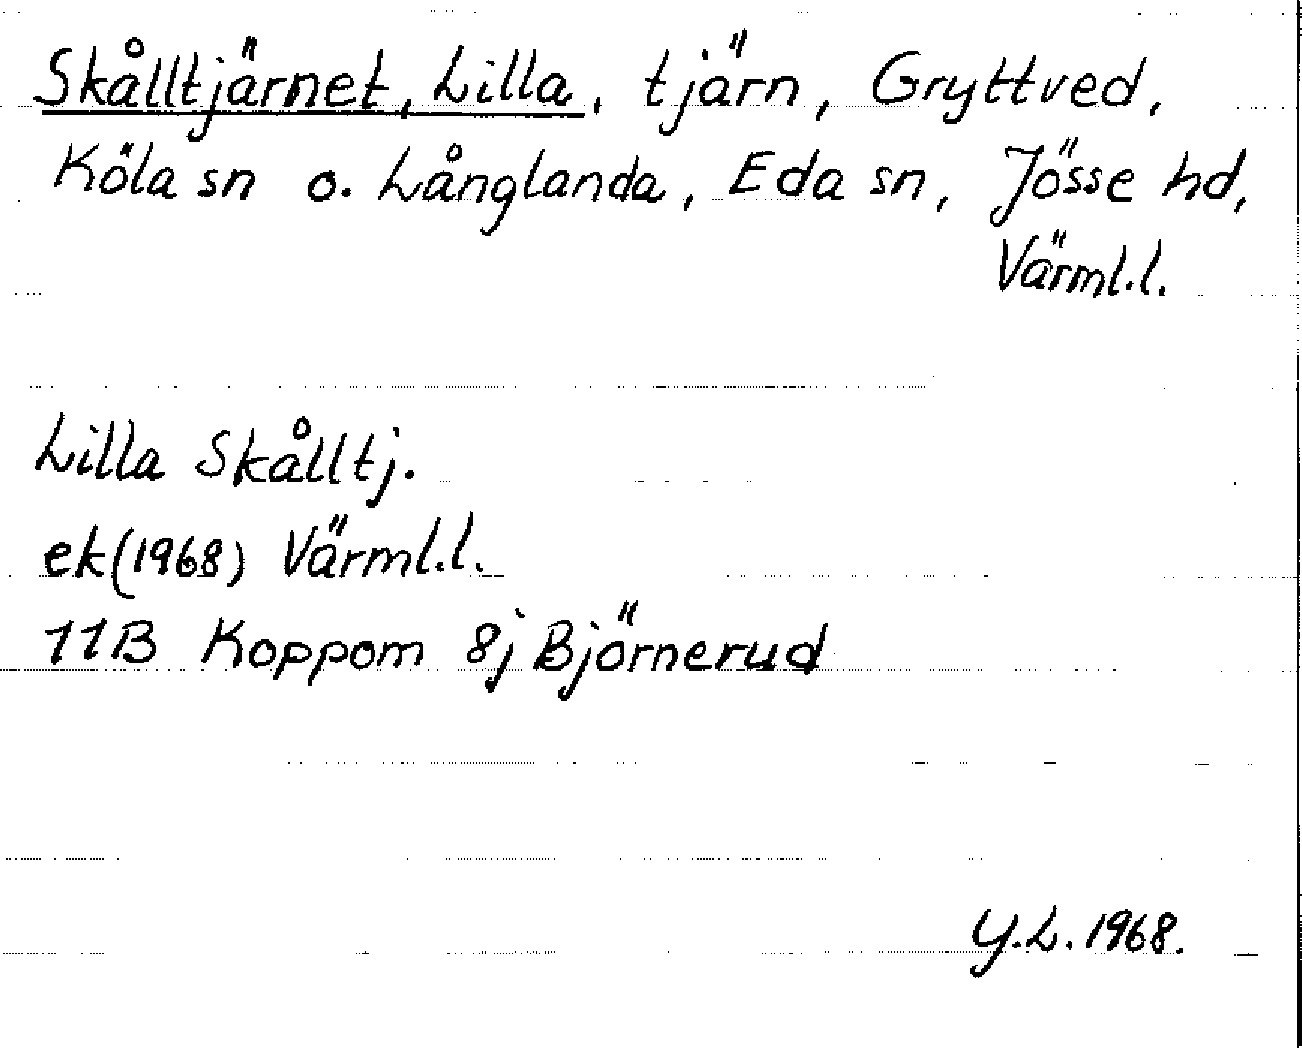 Skålltjärnet, Lilla, tjärn, Gryttved,
Köla sn o. Långlanda, Eda sn, Jösse hd,
Värml.l.
Lilla Skålltj.
ek(1968) Värml.l.
11B Koppom 8j Björnerud
Y.L. 1968.